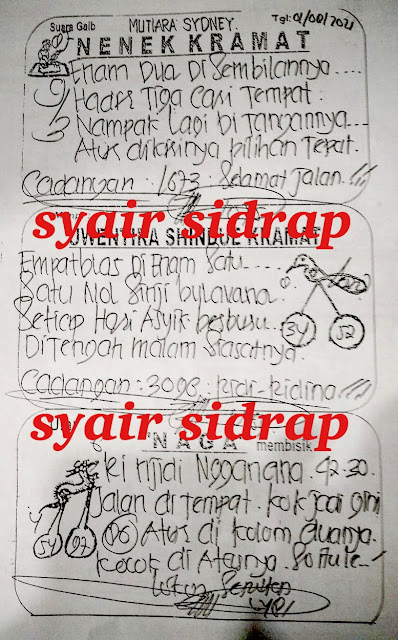 Suara Gaib MUTIARA SYDNEY. Tgl: 01/00/2021
NENEK KRAMAT
Enam Dua Di Sembilannya....
9 Hadir Tiga Cari Tempat.
3 Nampak Lagi Di Tangannya....
Atur dikasinya pilihan Tepat.
Cadangan: 1673. Selamat Jalan.
syair sidrap
UWENTIRA SHINDUE KRAMAT
Empatblas Di Enam Satu.....
Satu Nol
Setiap Hari Asyik berburu...
DiTengah malam Siasatnya.
34 52
Cadangan: 3006. Kidi-Kidina
syair sidrap
NAGA membisik
Ki njidi Ngganana. 42-30.
Jalan di tempat. kok jadi gini
54 97 06 Atur di kolom duanya.
Kocok di Aturnya.